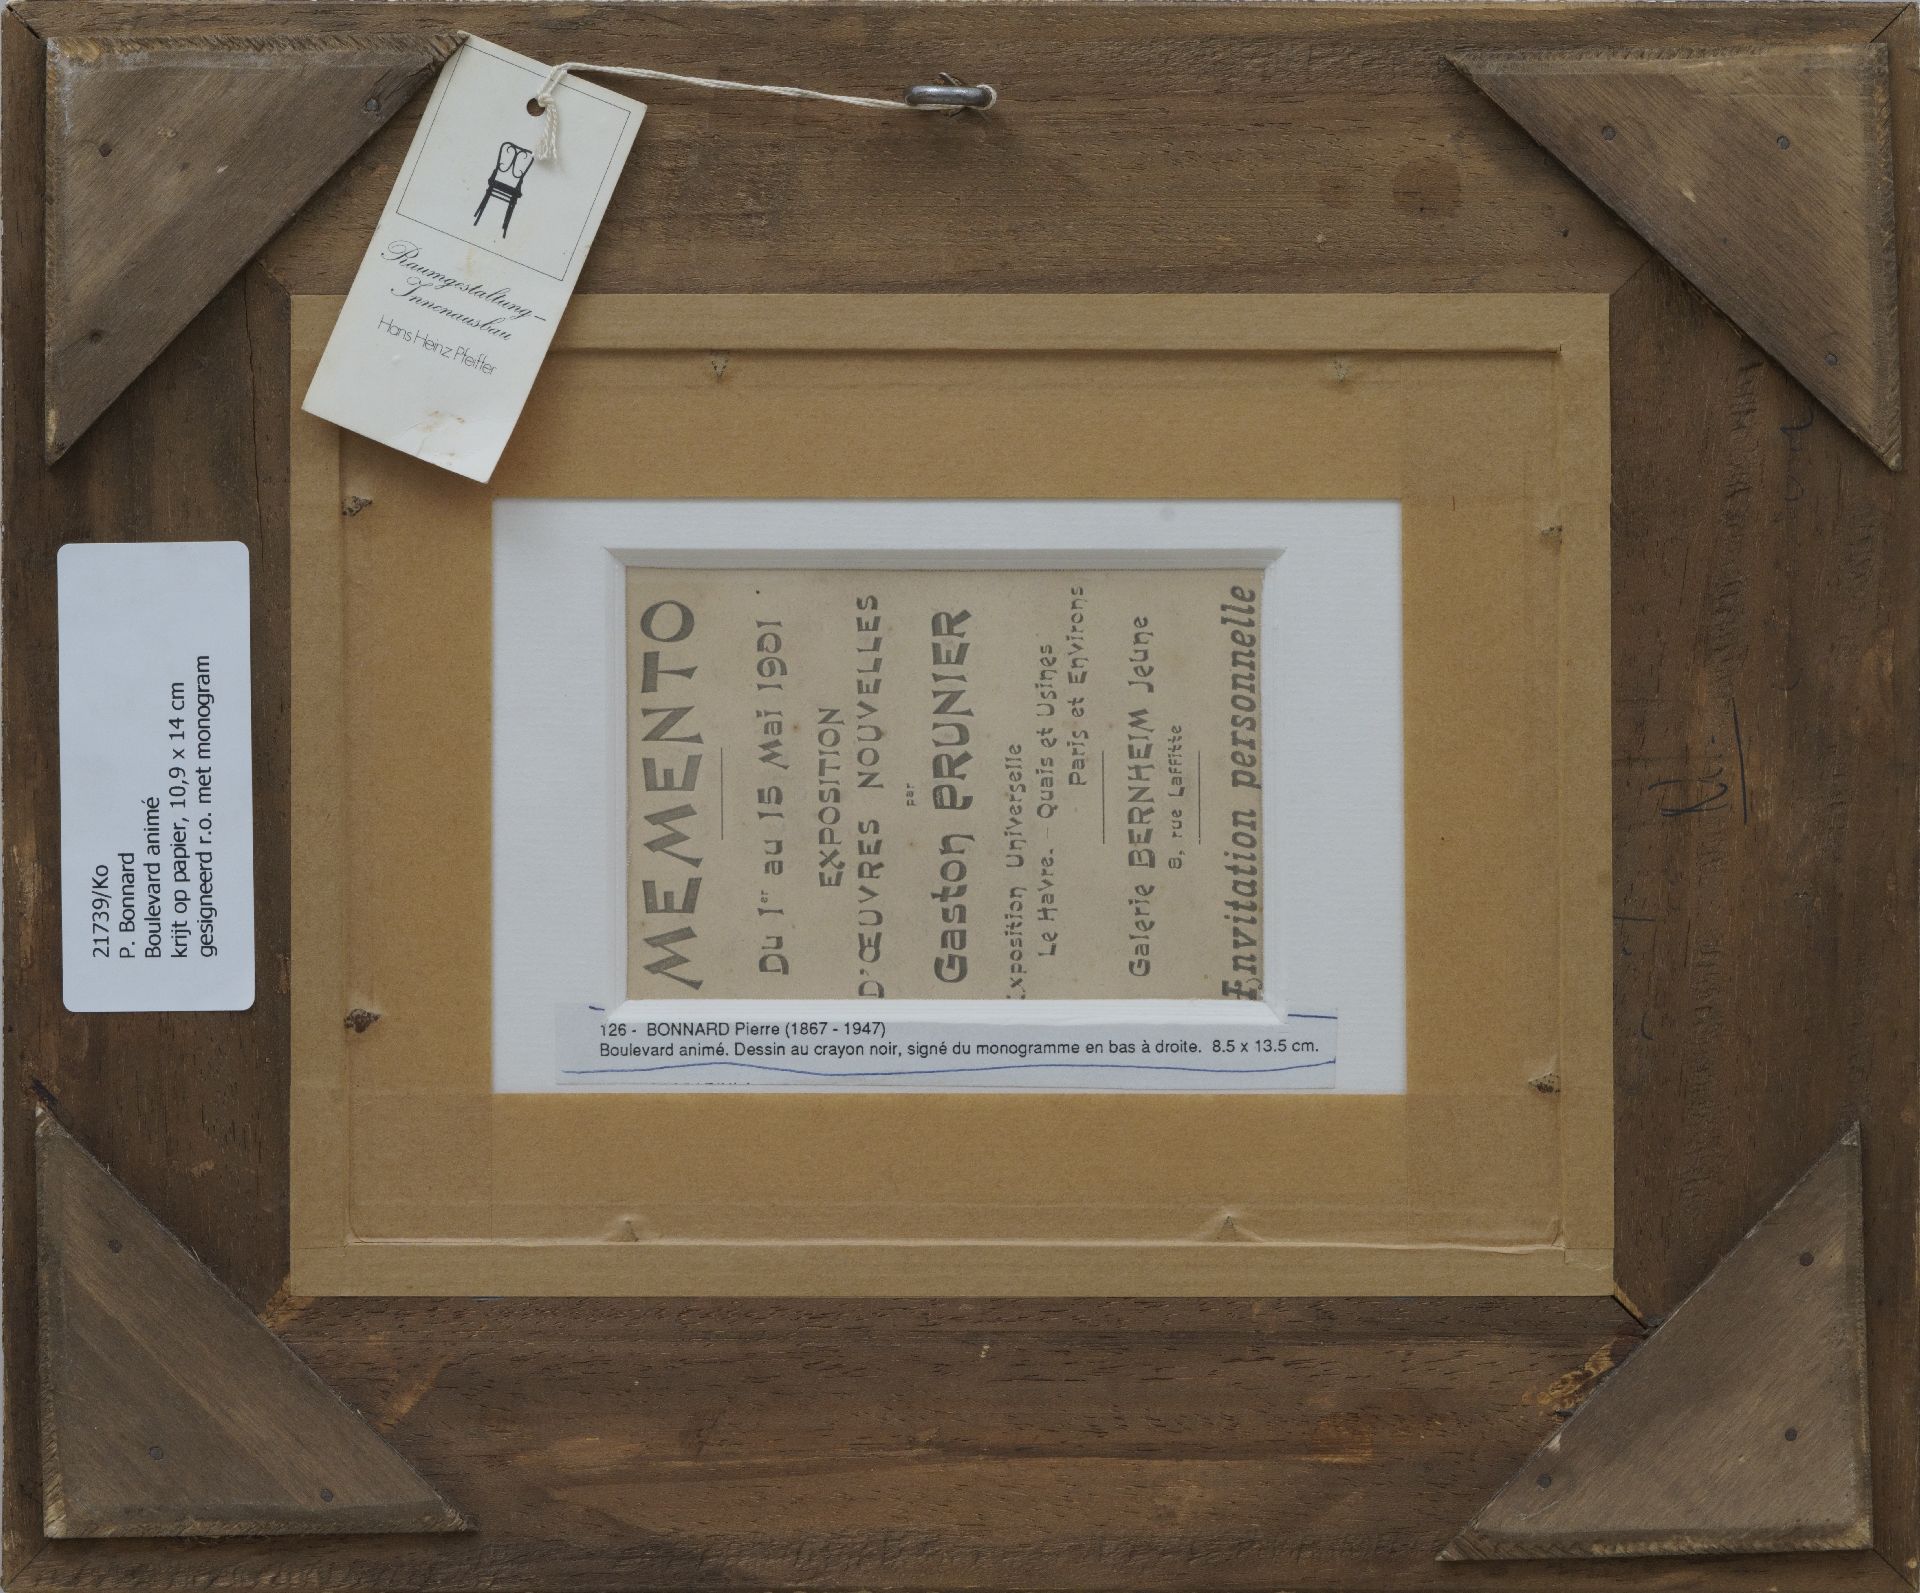 Raumgestaltung-
Innenausbau
Hans Heinz Pfeiffer
21739/Ko
P. Bonnard
Boulevard animé
krijt op papier, 10,9 x 14 cm
gesigneerd r.o. met monogram
MEMENTO
Du 1er au 15 Mai 1901
EXPOSITION
D'ŒUVRES NOUVELLES
par
Gaston PRUNIER
Exposition Universelle
Le Havre. - Quais et Usines
Paris et Environs
Galerie BERNHEIM Jeune
8, rue Laffitte
Invitation personnelle
126 - BONNARD Pierre (1867 - 1947)
Boulevard animé. Dessin au crayon noir, signé du monogramme en bas à droite. 8.5 x 13.5 cm.